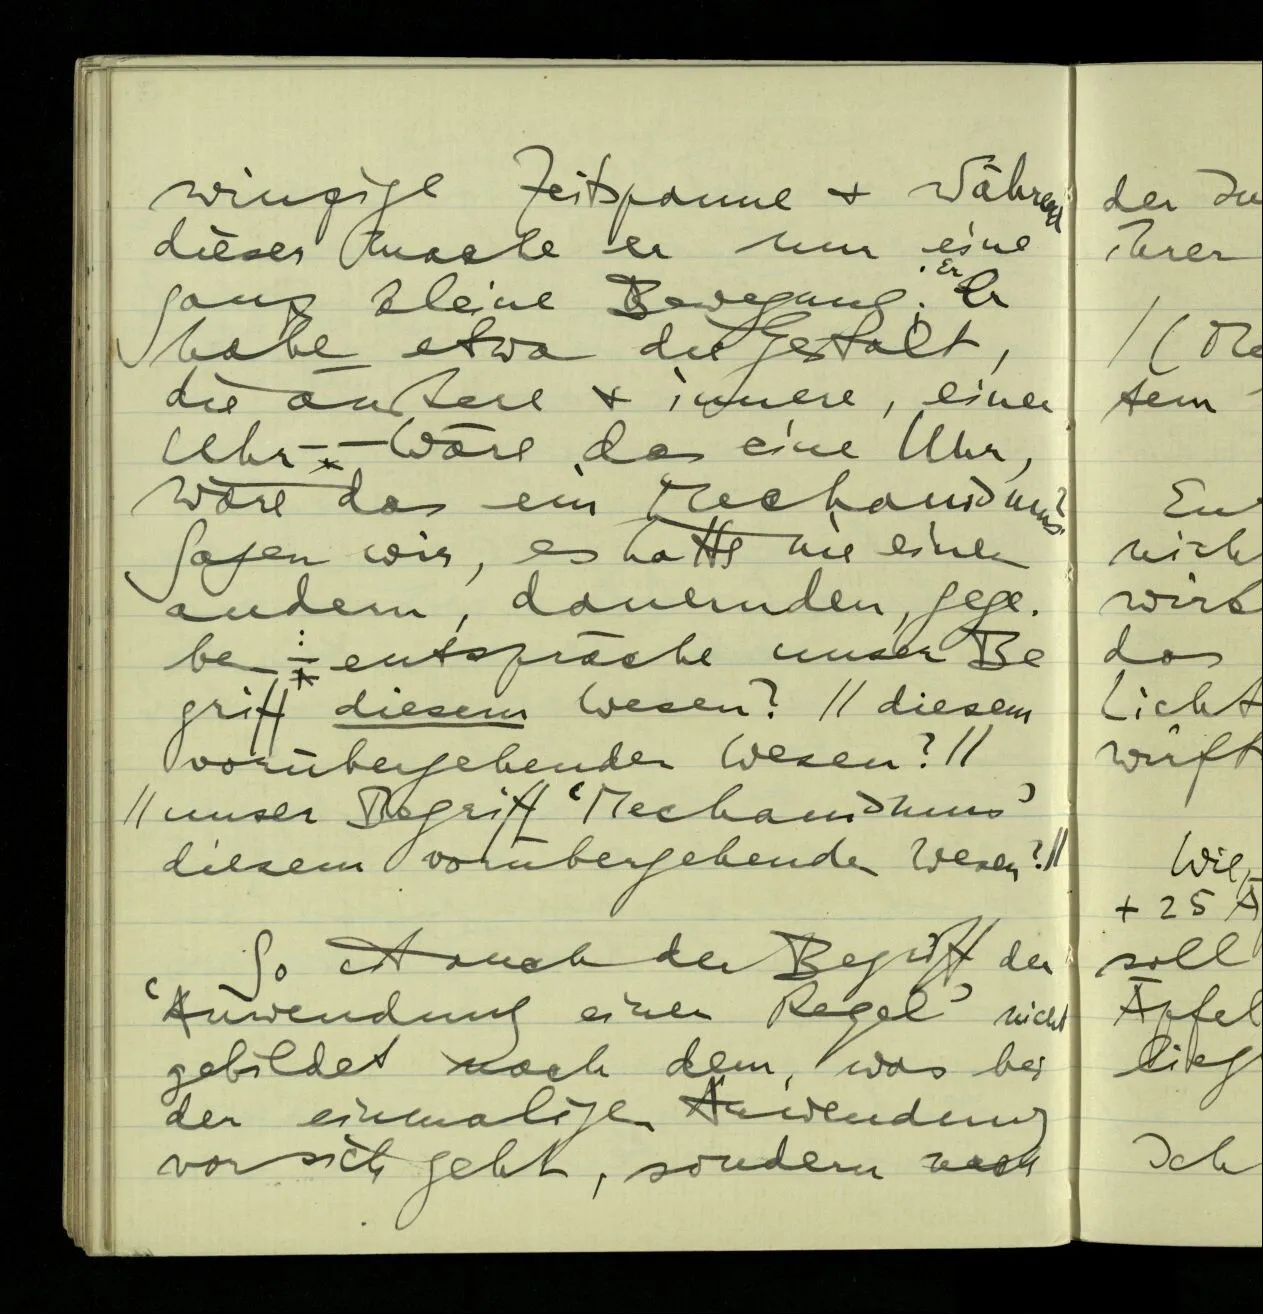 winzige Zeitspanne + während
dieser mache er nur eine
ganz kleine Bewegung. Er
habe etwa die Gestalt,
die äußere + innere, einer
Uhr – – Wäre das eine Uhr,
wäre das ein Mechanismus?
Sagen wir, es hätte nie einen
andern, dauernden, gege-
ben – entspräche unser Be
griff diesem Wesen? // diesem
vorübergehenden Wesen? //
// unser Begriff 'Mechanismus'
diesem vorübergehenden Wesen? //
So ist auch der Begriff der
'Anwendung einer Regel' nicht
gebildet nach dem, was bei
der einmaligen Anwendung
vor sich geht, sondern nach
der
ihrer
/ (
tem
nich
wirk
das
Licht
wirft
Wie,
+ 25 Ä
soll
Äpfel
lieg
Ich